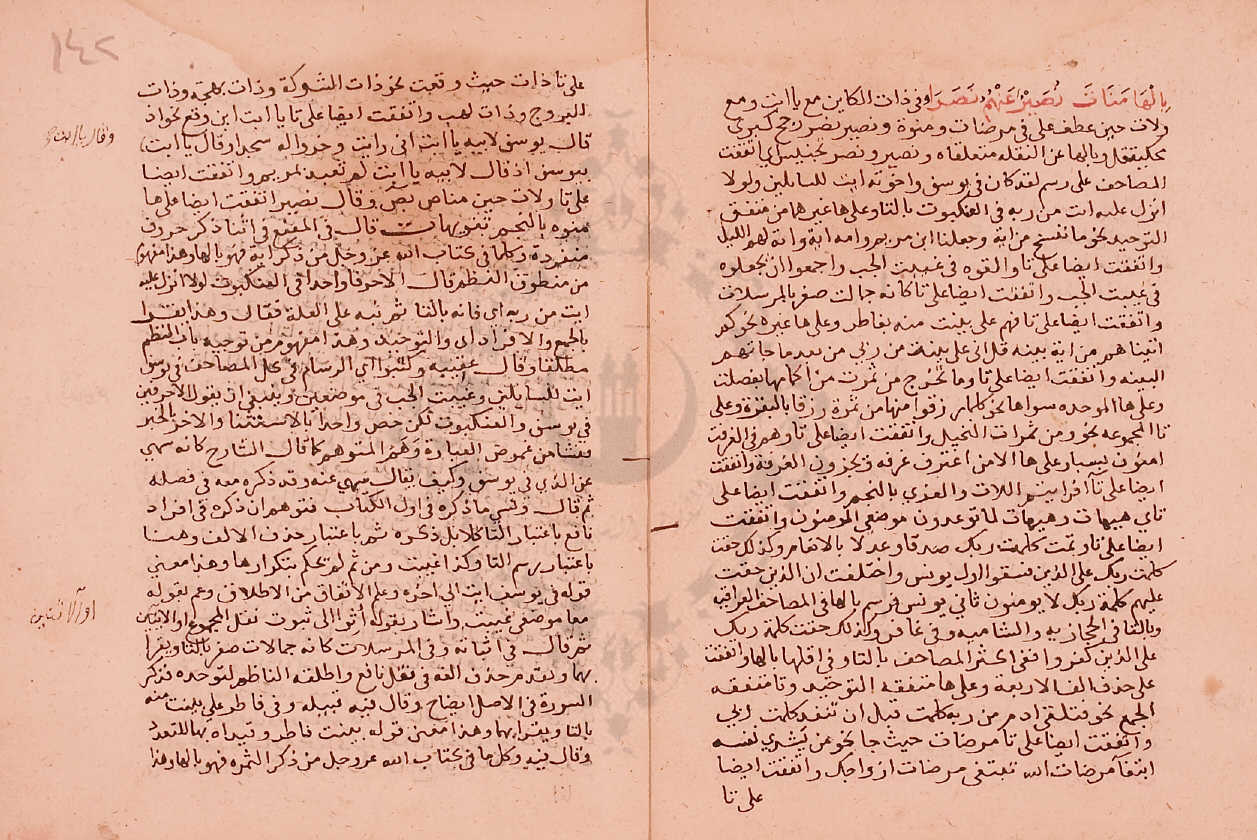 بالها مناة نصير عنهم نصرا وفي ذات الكاين مع يا ابت ومع
ولات حين عطف على في مرضات ومنوة ونصير نصر رجح كبيري
محكية فقل وبالها عن النقلة متعلقاه ونصير ونصر تجنيس اي اتفقت
المصاحف على رسم لقد كان في يوسف واخوته ايت للسائلين ولولا
انزل عليه ايت من ربه في العنكبوت بالتا وعلى ها غيرها من متفق
التوحيد نحو ما ننسخ من اية وجعلنا ابن مريم وامه اية واية لهم الليل
واتفقت ايضا على تا والقوه في غيبت الجب واجمعوا ان يجعلوه
في غيبت الجب واتفقت ايضا على تا كانه جمالت صفر بالمرسلات
واتفقت ايضا على تا فهم على بينت منه بفاطر وعلى ها غيره نحو كم
اتيناهم من اية بينه قل اني على بينة من ربي من بعد ما جاتهم
البينه واتفقت ايضا على تا وما تخرج من ثمرت من اكمامها بفصلت
وعلى ها الموحده سواها نحو كلما رزقوا منها من ثمرة رزقا بالبقرة وعلى
تا المجموعه نحو ومن ثمرات النخيل واتفقت ايضا على تا وهم في الغرفت
امنون بسبا وعلى ها الا من اغترف غرفه ويجزون الغرفة واتفقت
ايضا على تا افرايتم اللات والعزي بالنجم واتفقت ايضا على
تاي هيهات هيهات لما توعدون موضعي المومنون واتفقت
ايضا على تا وتمت كلمت ربك صدقا وعدلا بالانعام وكذلك حقت
كلمت ربك على الذين فسقوا اول يونس واختلفت ان الذين حقت
عليهم كلمة ربك لا يومنون ثاني يونس فرسم بالها في المصاحف العراقية
وبالتا في الحجازية والشامية وفي غافر وكذلك حقت كلمة ربك
على الذين كفروا ففي اكثر المصاحف بالتا وفي اقلها بالها واتفقت
على حذف الف الاربعة وعلى ها متفقه التوحيد وتا متفقه
الجمع نحو فتلقى ادم من ربه كلمت قبل ان تنفد كلمت ربي
واتفقت ايضا على تا مرضات حيث جا نحو من يشري نفسه
ابتغا مرضات الله تبتغي مرضات ازواجك واتفقت ايضا
على تا
١٤٢
على تا ذات حيث وقعت نحو ذات الشوكة وذات بهجة وذات
البروج وذات لهب واتفقت ايضا على تا يا ابت اين وقع نحو اذ
قال يوسف لابيه يا ابت اني رايت وخروا له سجدا وقال يا ابت
بيوسف اذ قال لابيه يا ابت لم تعبد بمريم واتفقت ايضا
على تا ولات حين مناص بص وقال نصير اتفقت ايضا على ها
منوه بالنجم تفريعات قال في المقنع في اثنا ذكر حروف
منفردة وكلما في كتاب الله عز وجل من ذكر اية فهو بالها وهذا مفهوم
من منطوق النظم قال الا حرفا واحدا في العنكبوت لولا انزل عليه
ايت من ربه اي فانه بالتا ثم نبه على العلة فقال وهذا يقرا
بالجمع والافراد اي والتوحيد وهذا مفهوم من توجيه باب النظم
مطلقا وقال عقيبه وكتبوا اي الرسام في كل المصاحف في يوسف
ايت للسايلين وغيبت الجب في موضعين وينبغي ان يقول الا حرفين
في يوسف والعنكبوت لكن خص واحدا بالاستثنا والاخر الخبر
فنشا من غموض العبارة وهم المتوهم كما قال الشارح كانه سهي
عن الذي في يوسف وكيف يقال سهي عنه وقد ذكره معه في فصله
ثم قال ونسي ما ذكره في اول الكتاب فتوهم ان ذكره في افراد
نافع باعتبار التا كلا بل ذكره ثم باعتبار حذف الالف وهنا
باعتبار رسم التا وكذا غيبت ومن ثم لم تحكم بتكرارها وهذا معني
قوله في يوسف ايت الى اخره وعلم الاتفاق من الاطلاق وعم بقوله
معا موضعي غيبت واشار بقوله اتوا الى ثبوت نقل المجموع او الاثنين
ثم قال في اثباته وفي المرسلات كانه جمالات صفر بالتا ويقرا
بها وتقدم حذف الفه في نقل نافع واطلقه الناظم لتوحده وذكر
السورة في الاصل ايضاح وقال فيه قبيله وفي فاطر على بينت منه
بالتا ويقرا بهما وهذا معنى قوله بينت فاطر وقيده بها للتعدد
وقال فيه وكل ما في كتاب الله عز وجل من ذكر الثمره فهو بالها وهذا
وقال يا ابت
او الاثنين